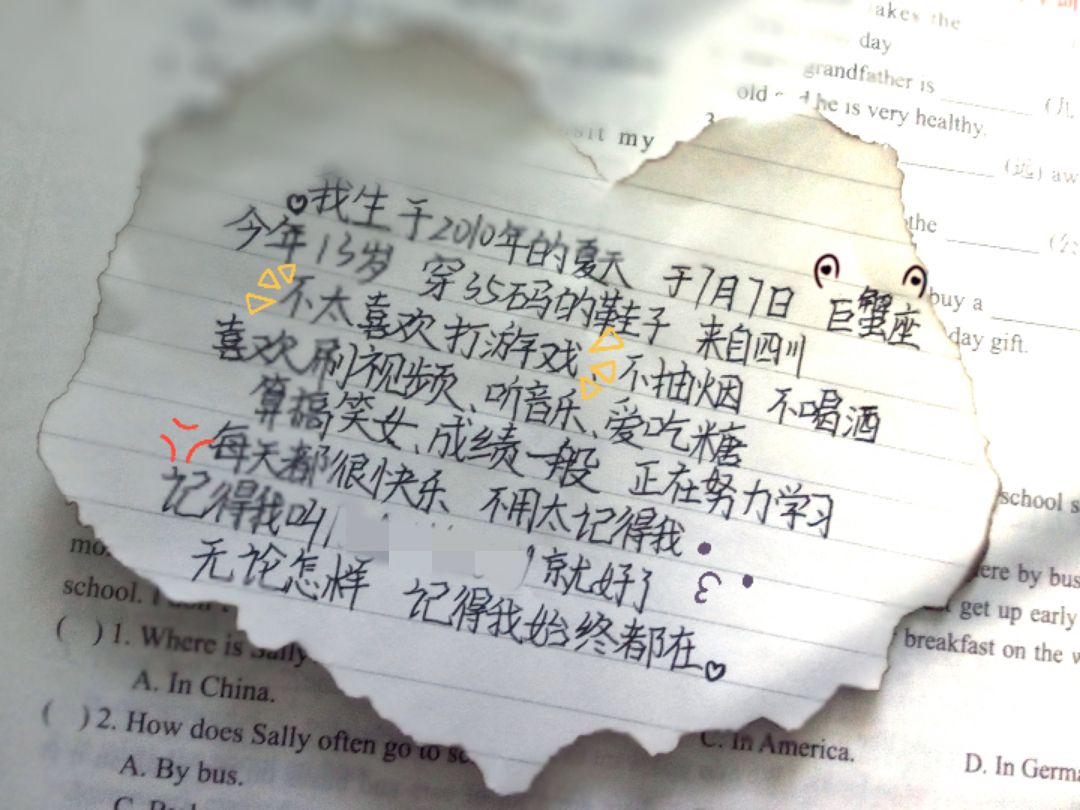 akes the
day
grandfather is ______ (九
old and he is very healthy.
3.
sit my
______ (远) aw
the ______
buy a ______
day gift.
我生于2010年的夏天 于7月7日 巨蟹座
今年13岁 穿35码的鞋子 来自四川
不太喜欢打游戏、不抽烟 不喝酒
喜欢刷视频、听音乐、爱吃糖
算搞笑女、成绩一般 正在努力学习
每天都很快乐 不用太记得我
记得我叫 就好了
无论怎样 记得我始终都在
school s
mo
ere by bus
school. I don't
get up early
breakfast on the w
( ) 1. Where is Sally
A. In China.
C. In America.
D. In Germa
( ) 2. How does Sally often go to sc
A. By bus.